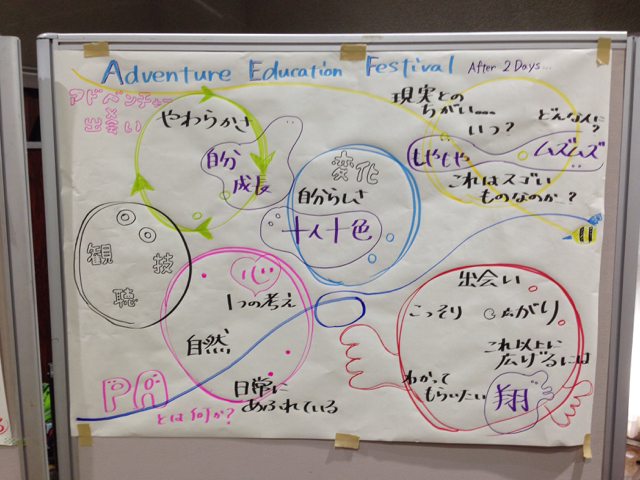 Adventure Education Festival After 2 Days...
アドベンチャー
×
出会い
やわらかさ
自分
成長
変化
自分らしさ
十人十色
現実との
ちがい....
いつ?
どんな人に?
もやもや
ムズムズ
これはスゴい
ものなのか?
観
技
聴
心
1つの考え
自然
日常に
あふれている
PA
とは何か?
出会い
こっそり
広がり
これ以上に
広げるには
わかって
もらいたい
翔